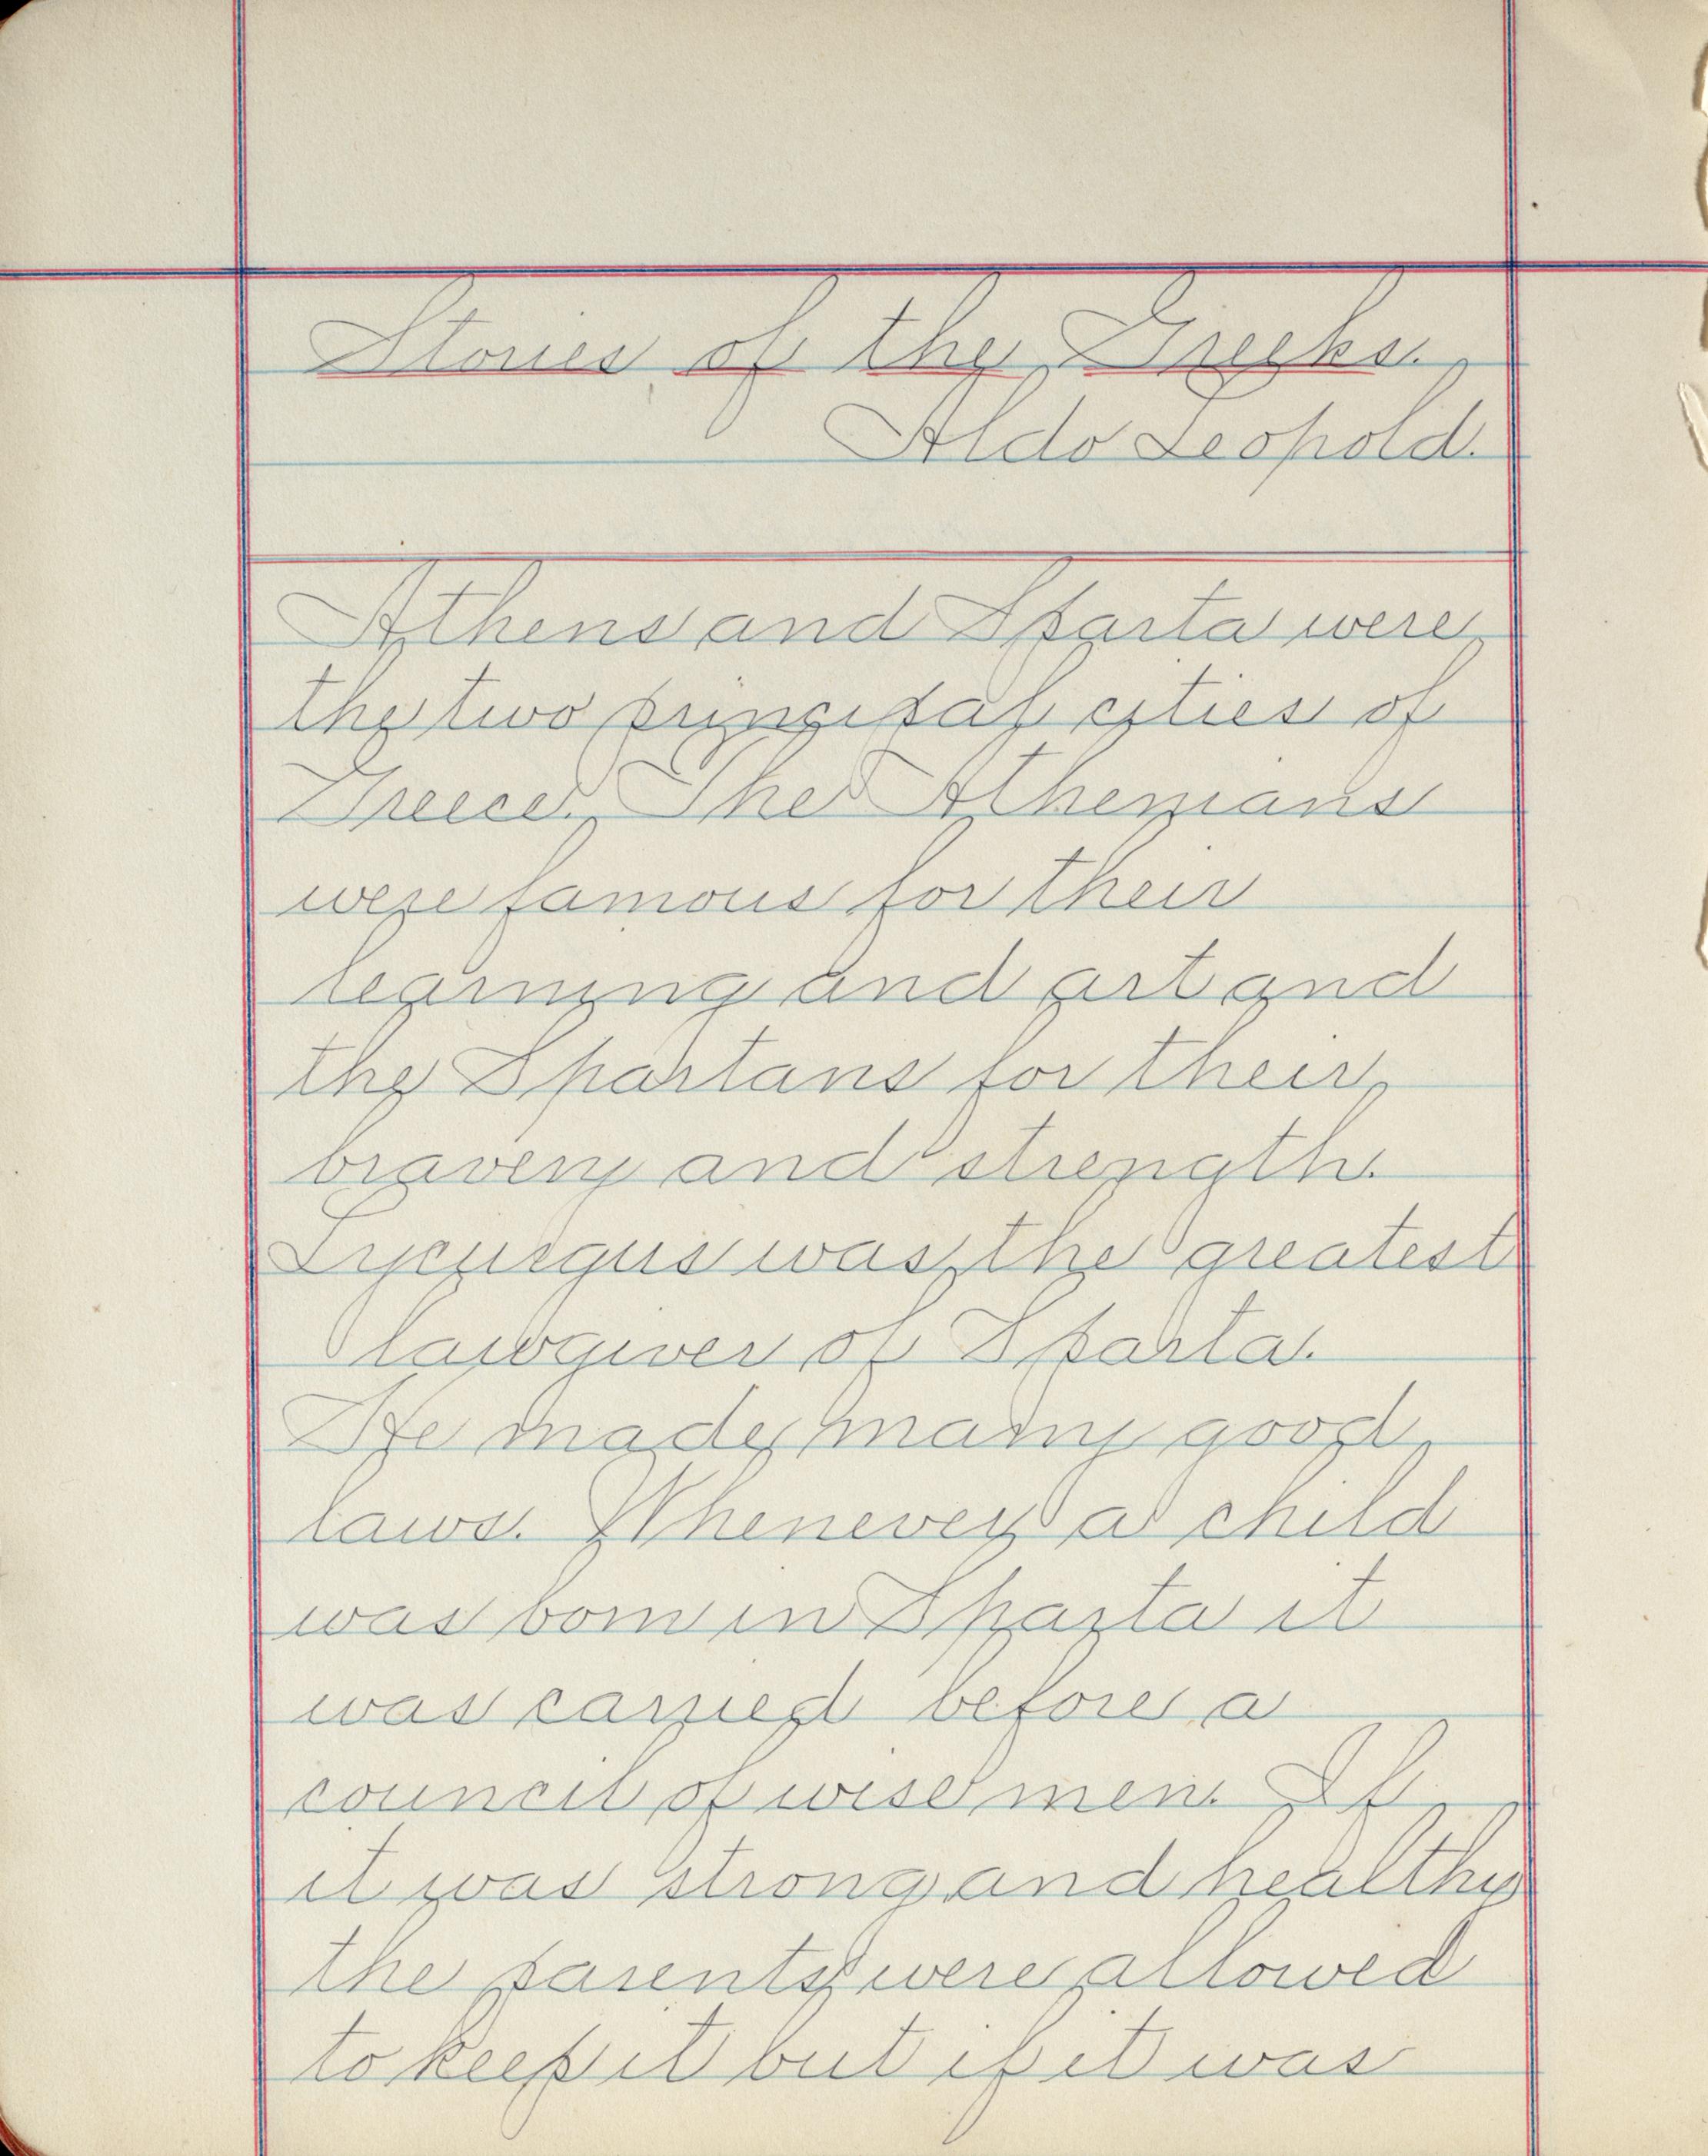 Stories of the Greeks.
Aldo Leopold.
Athens and Sparta were
the two principal cities of
Greece. The Athenians
were famous for their
learning and art and
the Spartans for their
bravery and strength.
Lycurgus was the greatest
lawgiver of Sparta.
He made many good
laws. Whenever a child
was born in Sparta it
was carried before a
council of wise men. If
it was strong and healthy
the parents were allowed
to keep it but if it was